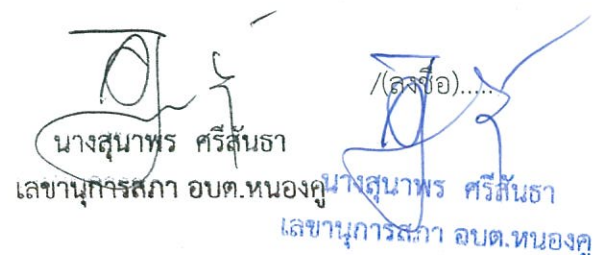 /(ลงชื่อ).....
นางสุนาพร ศรีสันธา
เลขานุการสภา อบต.หนองคู
นางสุนาพร ศรีสันธา
เลขานุการสภา อบต.หนองคู